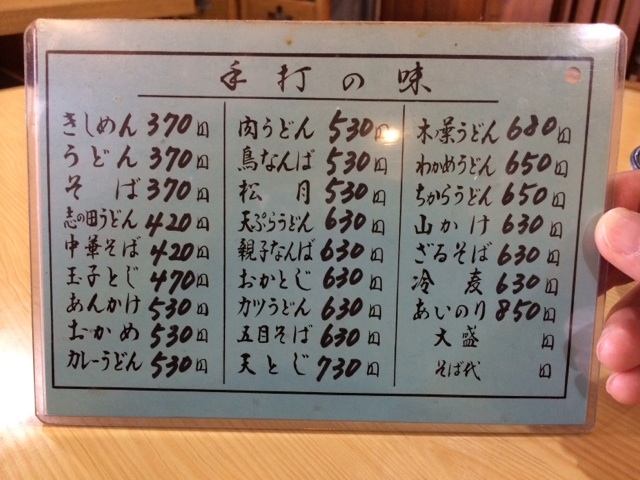 手打の味
きしめん 370円
うどん 370円
そば 370円
志の田うどん 420円
中華そば 420円
玉子とじ 470円
あんかけ 530円
おかめ 530円
カレーうどん 530円
肉うどん 530円
鳥なんば 530円
松月 530円
天ぷらうどん 630円
親子なんば 630円
おかとじ 630円
カツうどん 630円
五目そば 630円
天とじ 730円
木の葉うどん 680円
わかめうどん 650円
ちからうどん 650円
山かけ 630円
ざるそば 630円
冷麦 630円
あいのり 850円
大盛 円
そば代 円